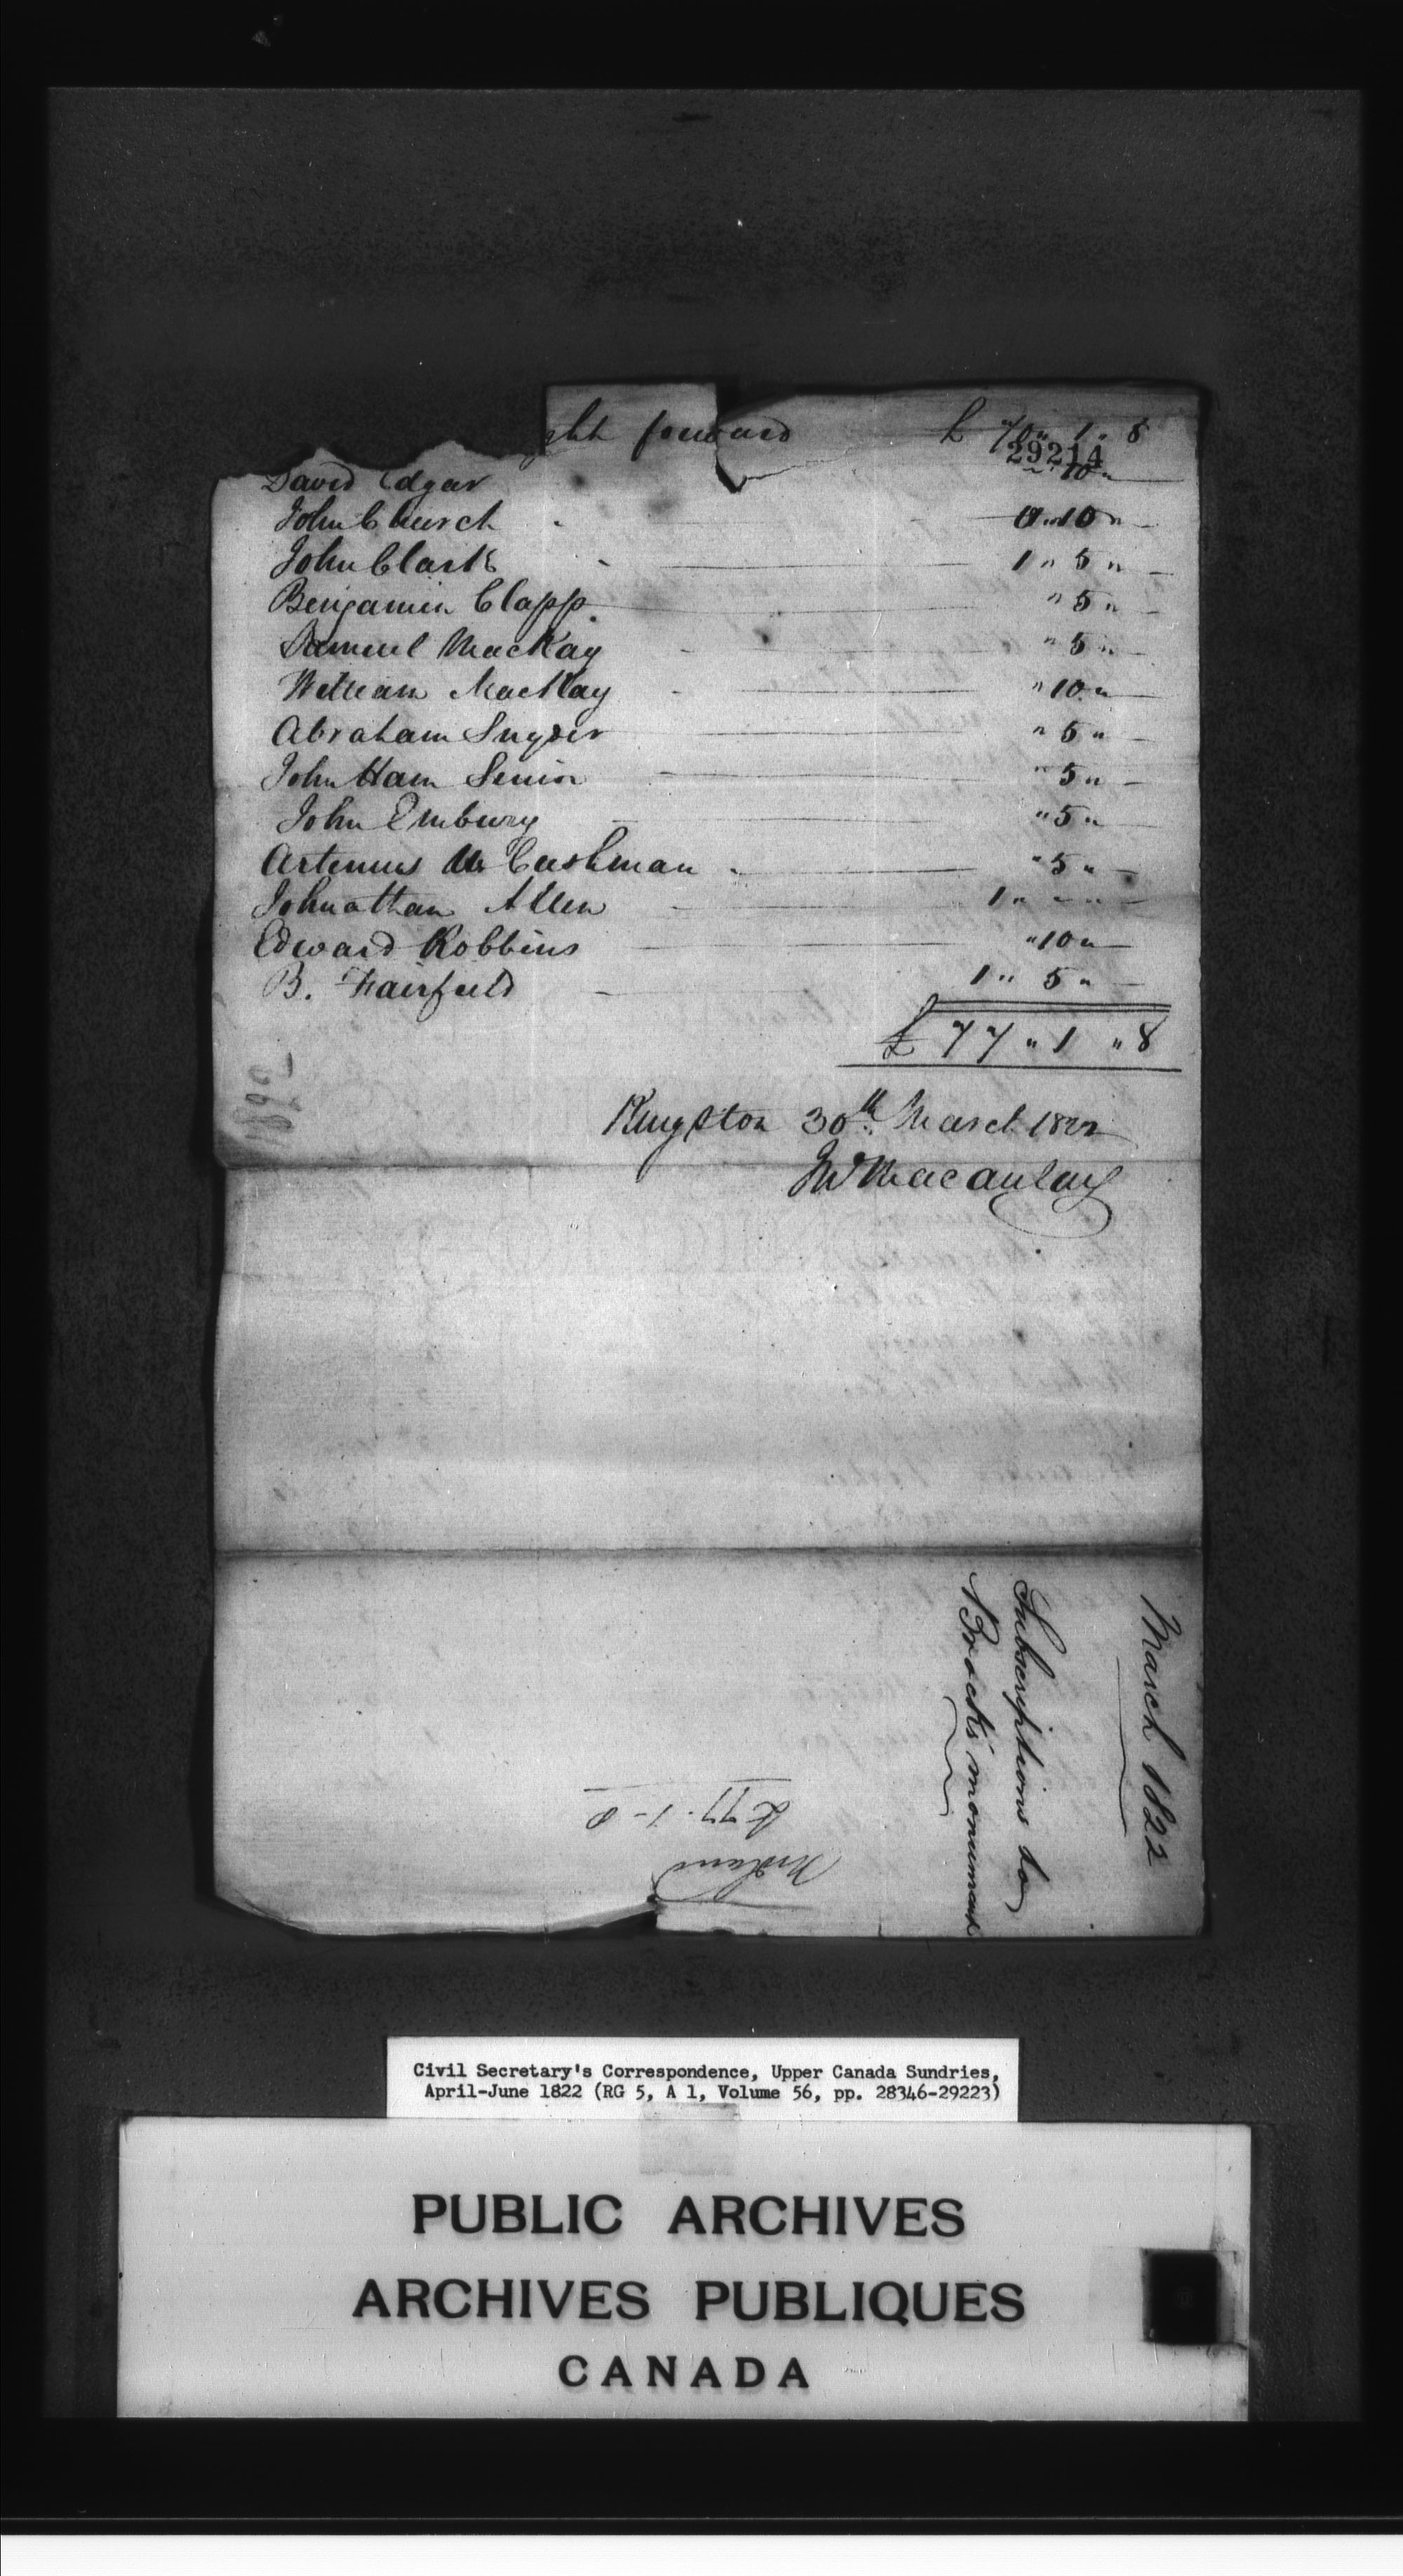 ght forward £ 70 " 1 " 8
29214
David Edgar " 10 "
John Church 0 " 10 "
John Clark 1 " 5 "
Benjamin Clapp " 5 "
Samuel MacKay " 5 "
William MacKay " 10 "
Abraham Snyder " 5 "
John Ham Senior " 5 "
John Embury " 5 "
Artemus W. Cushman " 5 "
Johnathan Allen 1 " - " -
Edward Robbins " 10 "
B. Fairfield 1 " 5 "
£ 77 " 1 " 8
Kingston 30th March 1822
Jn Macaulay
March 1822
Subscriptions to
Brocks' monument
Midland
£ 77 - 1 - 8
Civil Secretary's Correspondence, Upper Canada Sundries,
April-June 1822 (RG 5, A 1, Volume 56, pp. 28346-29223)
PUBLIC ARCHIVES
ARCHIVES PUBLIQUES
CANADA